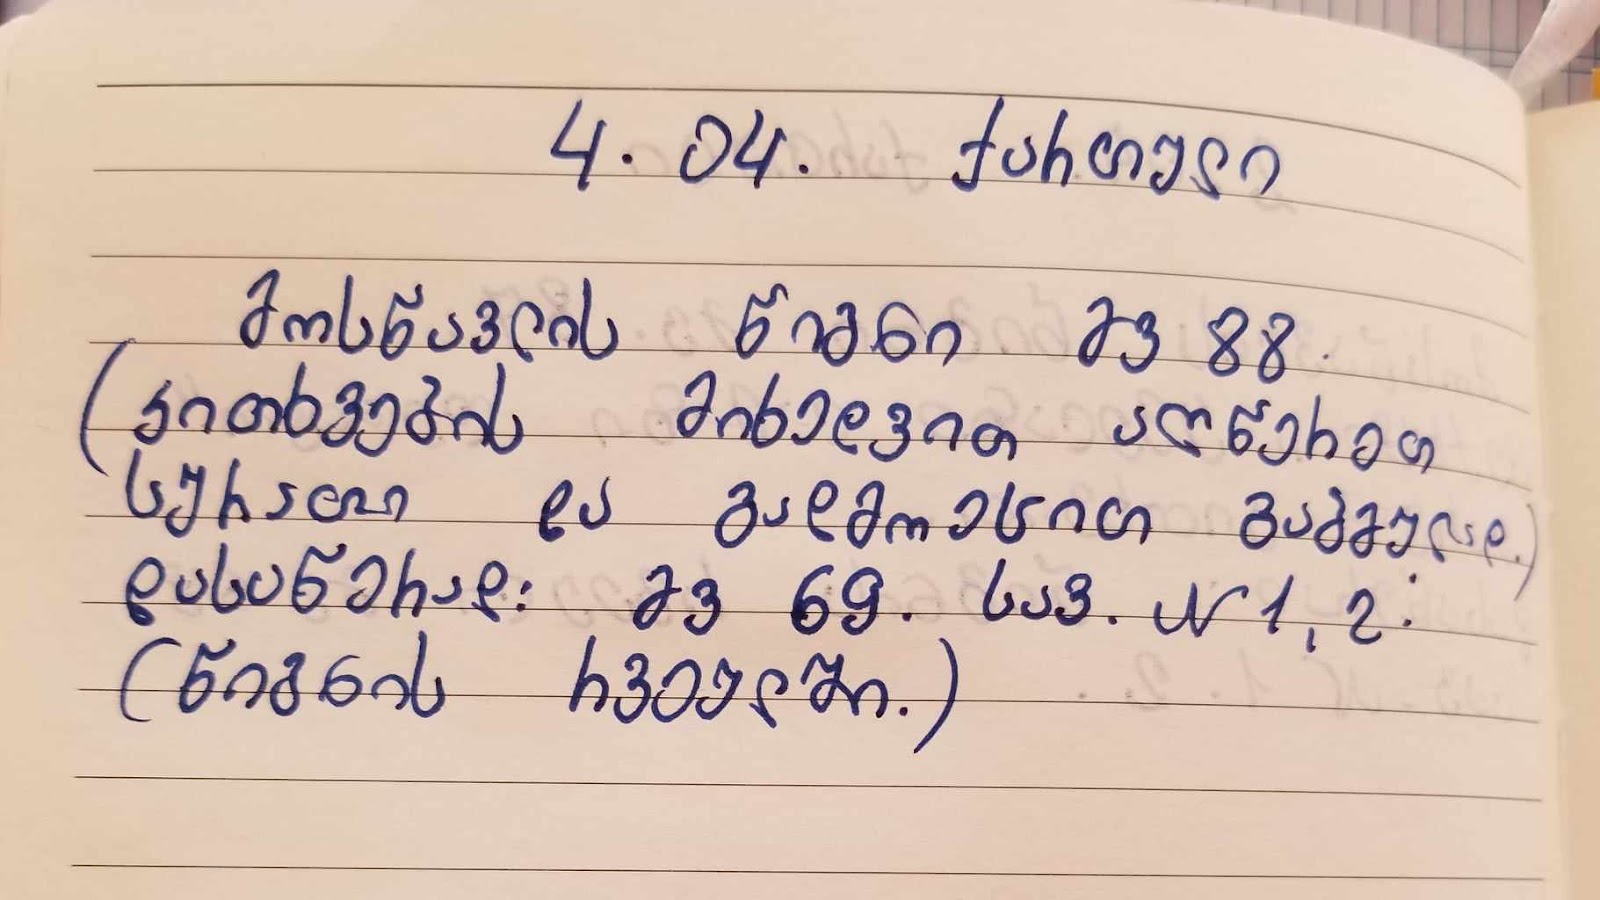 4. 04. ქართული
მოსწავლის წიგნი გვ 88.
(კითხვების მიხედვით აღწერეთ
სურათი და გადმოეცით გაბმულად.)
დასაწერად: გვ 69. სავ. N 1, 2.
(წიგნის რვეულში.)